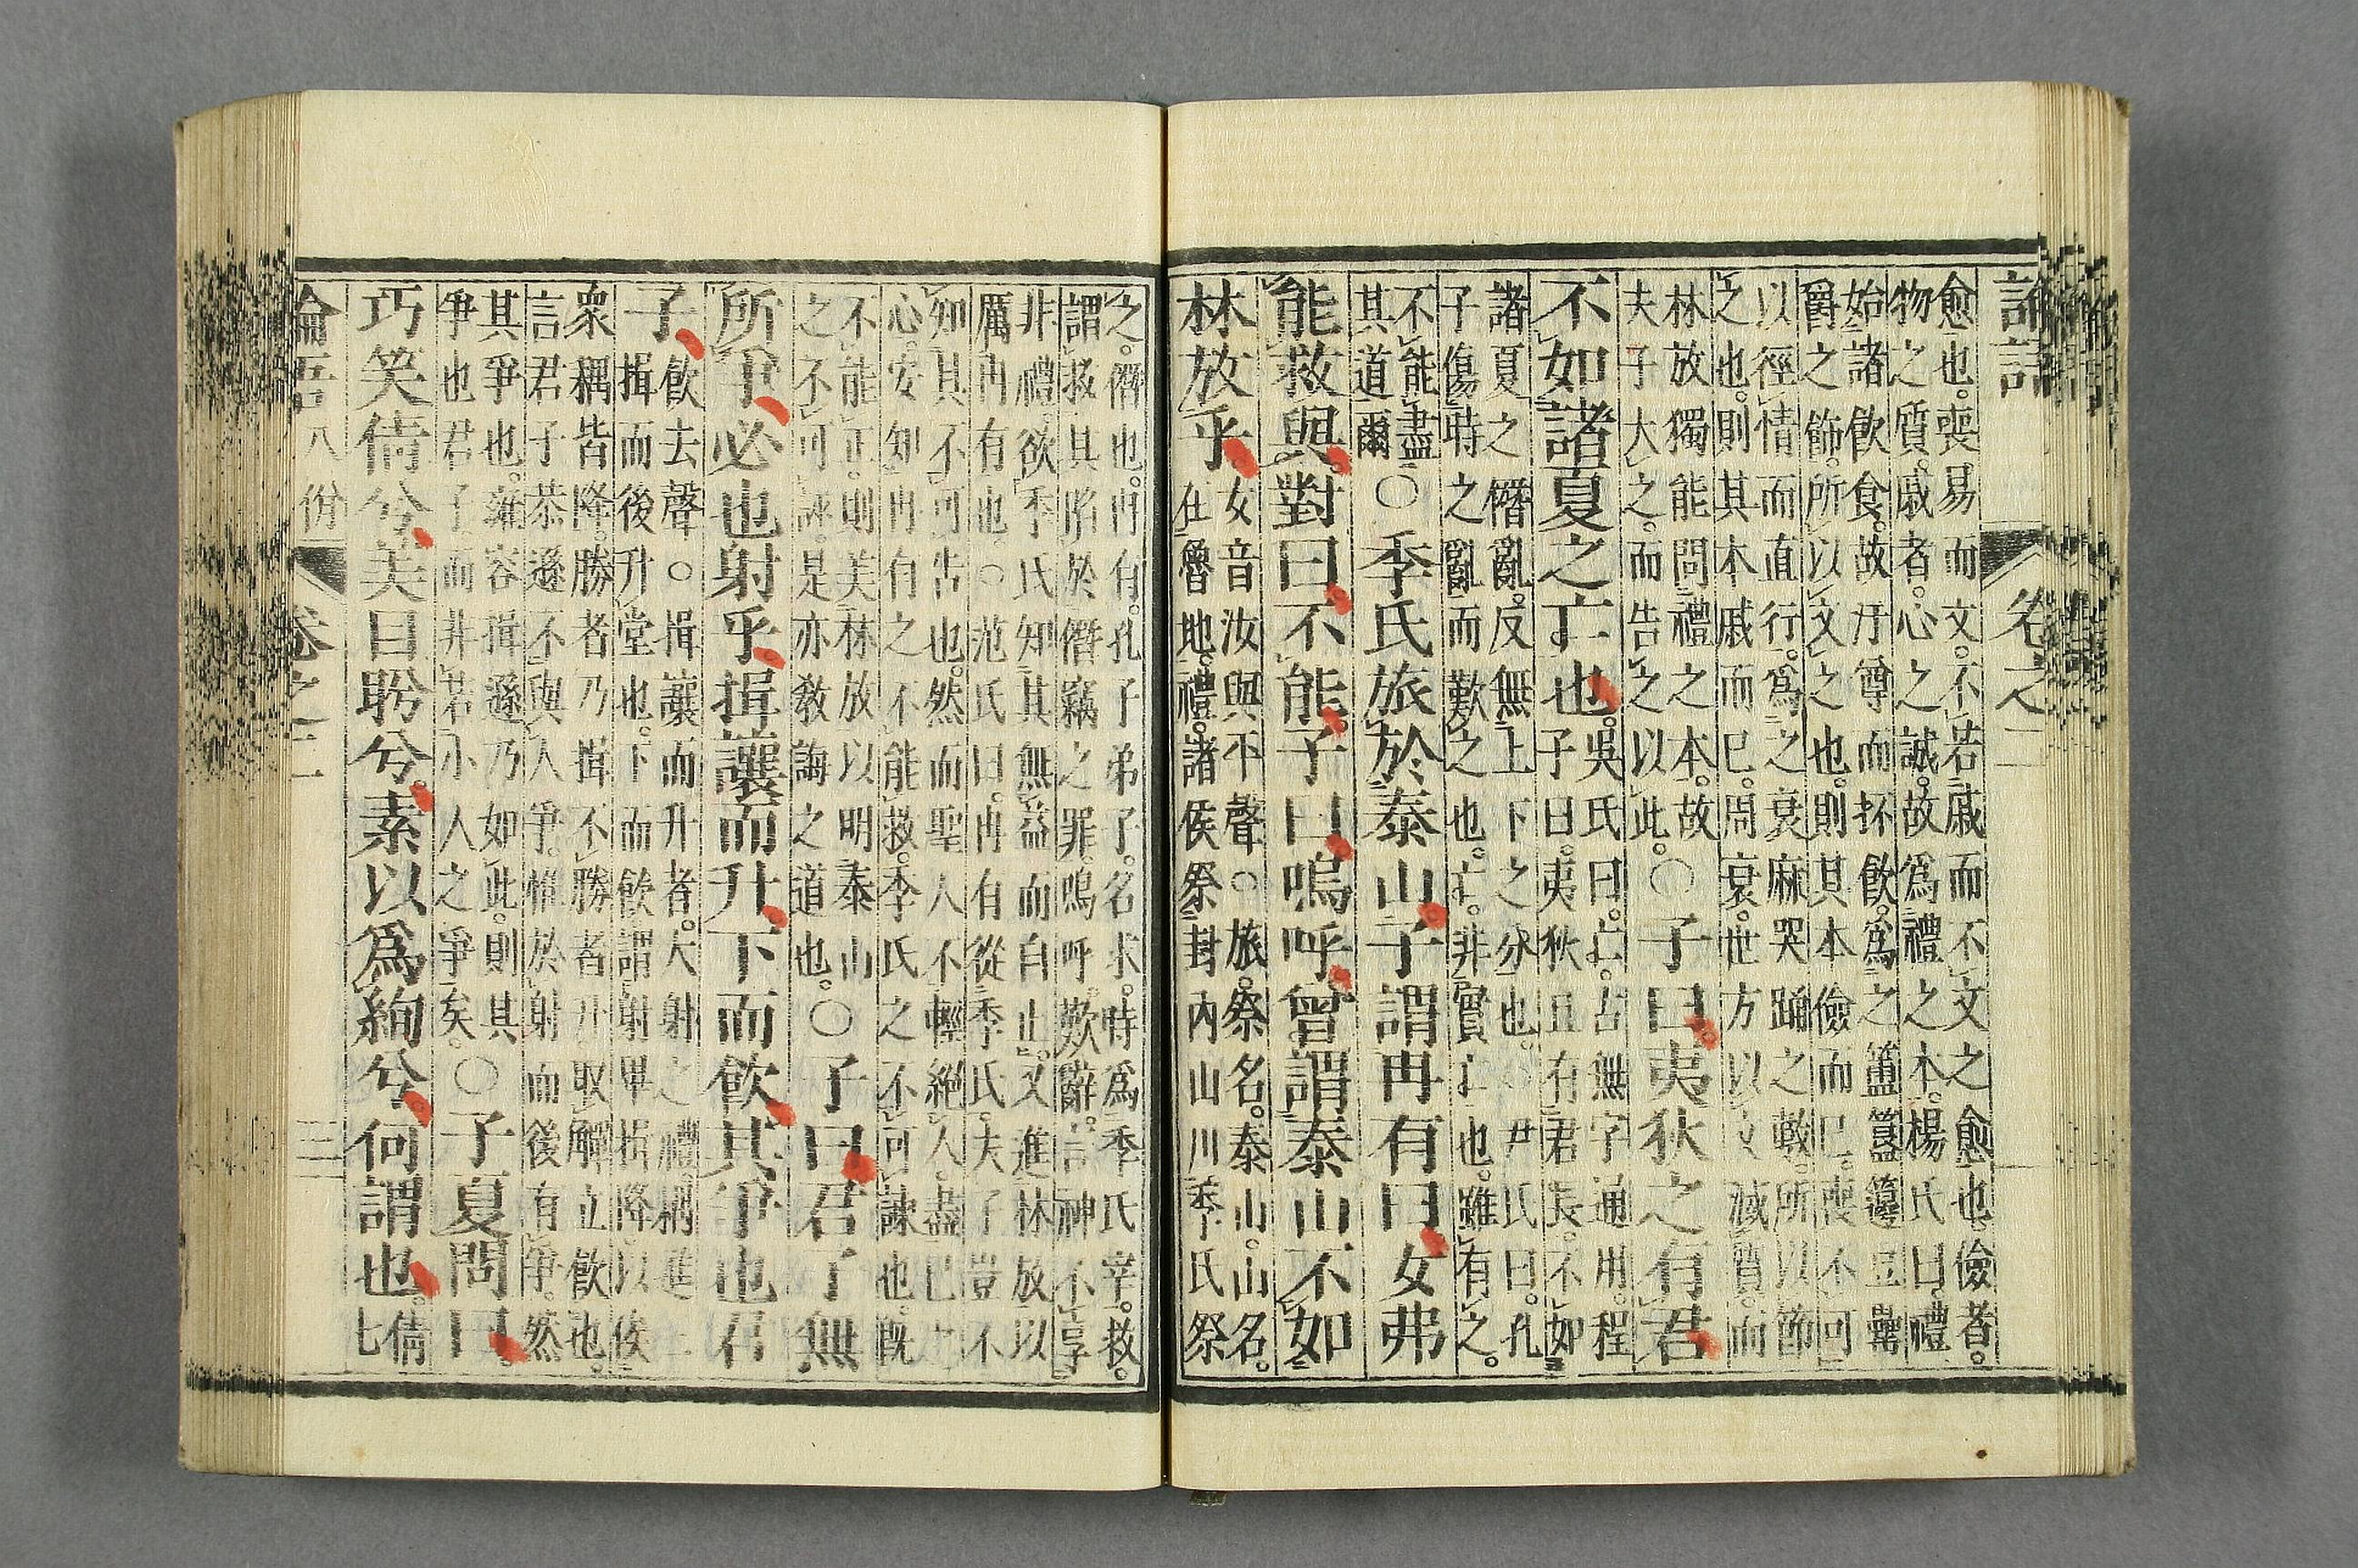 論語　卷之二
愈也。喪易而文。不若戚而不文之愈也儉者。
物之質。戚者。心之誠。故爲禮之本。楊氏曰禮
始諸飲食。故汙尊而抔飲。爲之簠簋籩豆罍
爵之飾。所以文之也。則其本儉而已。喪不可
以徑情而直行。爲之衰麻哭踊之數。所以節
之也。則其本戚而已。周衰。世方以文滅質。而
林放獨能問禮之本。故
夫子大之。而告之以此。〇子曰。夷狄之有君
不如諸夏之亡也。吳氏曰。亡。古無字通用。程
子曰。夷狄且有君長。不如
諸夏之僭亂。反無上下之分也。尹氏曰。孔
子傷時之亂而歎之也。亡。非實亡也。雖有之。
不能盡
其道爾〇季氏旅於泰山。子謂冉有曰。女弗
能救與。對曰。不能。子曰。嗚呼。曾謂泰山不如
林放乎。女音汝與平聲〇旅。祭名。泰山。山名。
在魯地。禮。諸侯祭封內山川季氏祭
之。僭也。冉有。孔子弟子。名求。時爲季氏宰。救。
謂救其陷於僭竊之罪。嗚呼。歎辭。言神不享
非禮。欲季氏知其無益而自止。又進林放以
厲冉有也。〇范氏曰。冉有從季氏。夫子豈不
知其不可告也。然而聖人不輕絕人。盡已之
心。安知冉有之不能救。季氏之不可諫也。既
不能正。則美林放以明泰山
之不可誣。是亦敎誨之道也。〇子曰。君子無
所爭。必也射乎。揖讓而升。下而飲。其爭也君
子、飲去聲〇揖讓而升者。大射之禮耦進三
揖而後升堂也。下而飲謂射畢揖降。以俟
衆耦皆降。勝者乃揖不勝者升取觶立飲也。
言君子恭遜不與人爭。惟於射而後有爭。然
其爭也。雍容揖遜乃如此。則其
爭也君子。而非若小人之爭矣。〇子夏問曰。
巧笑倩兮、美目盼兮。素以爲絢兮、何謂也。倩
七
論語八佾　卷之二　三